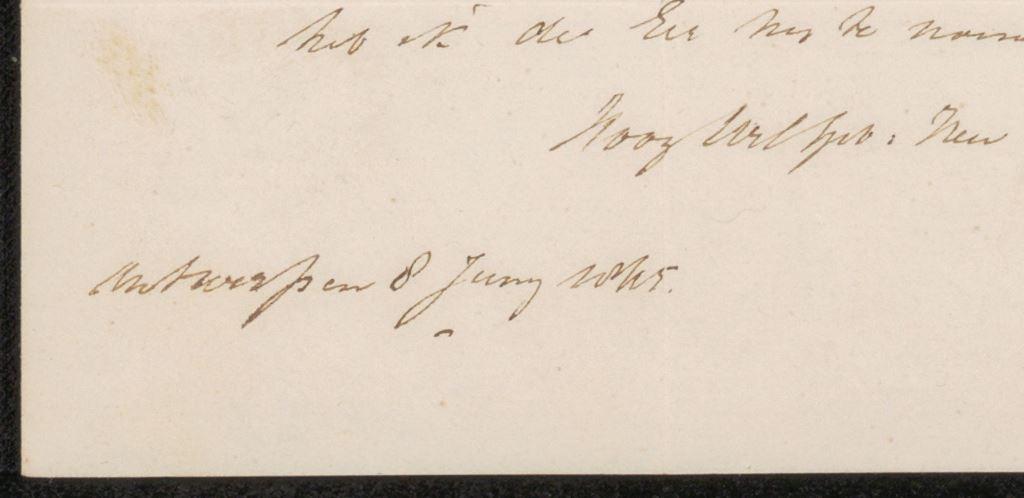 heb ik de Eer my te noem
Hoog WelGeb: Heer
Antwerpen 8 Juny 1845.